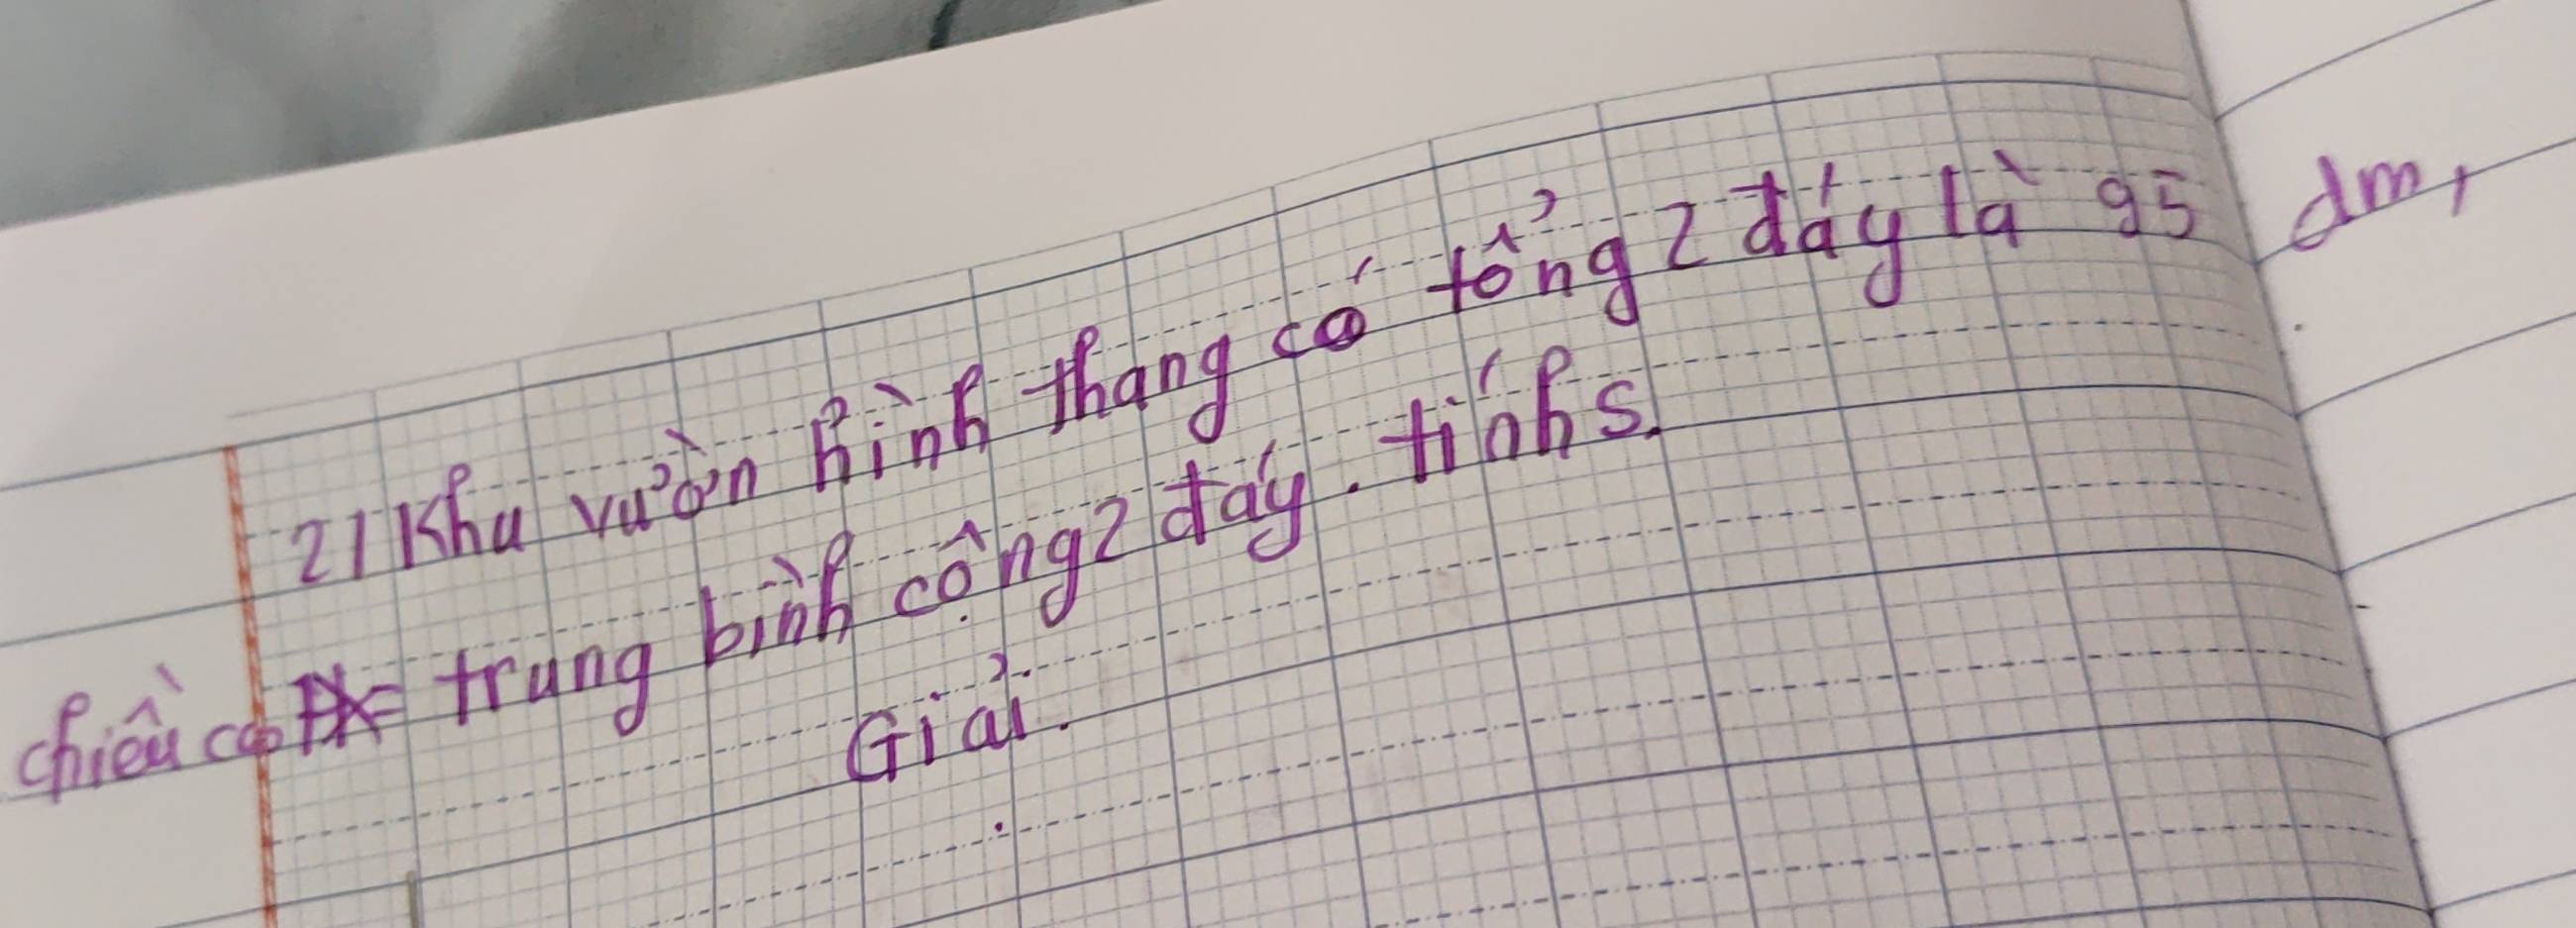 2/ Khu vườn hình thang có tổng 2 đáy là 95 dm,
chiều cao = trung bình cộng 2 đáy. tính S.
Giải.